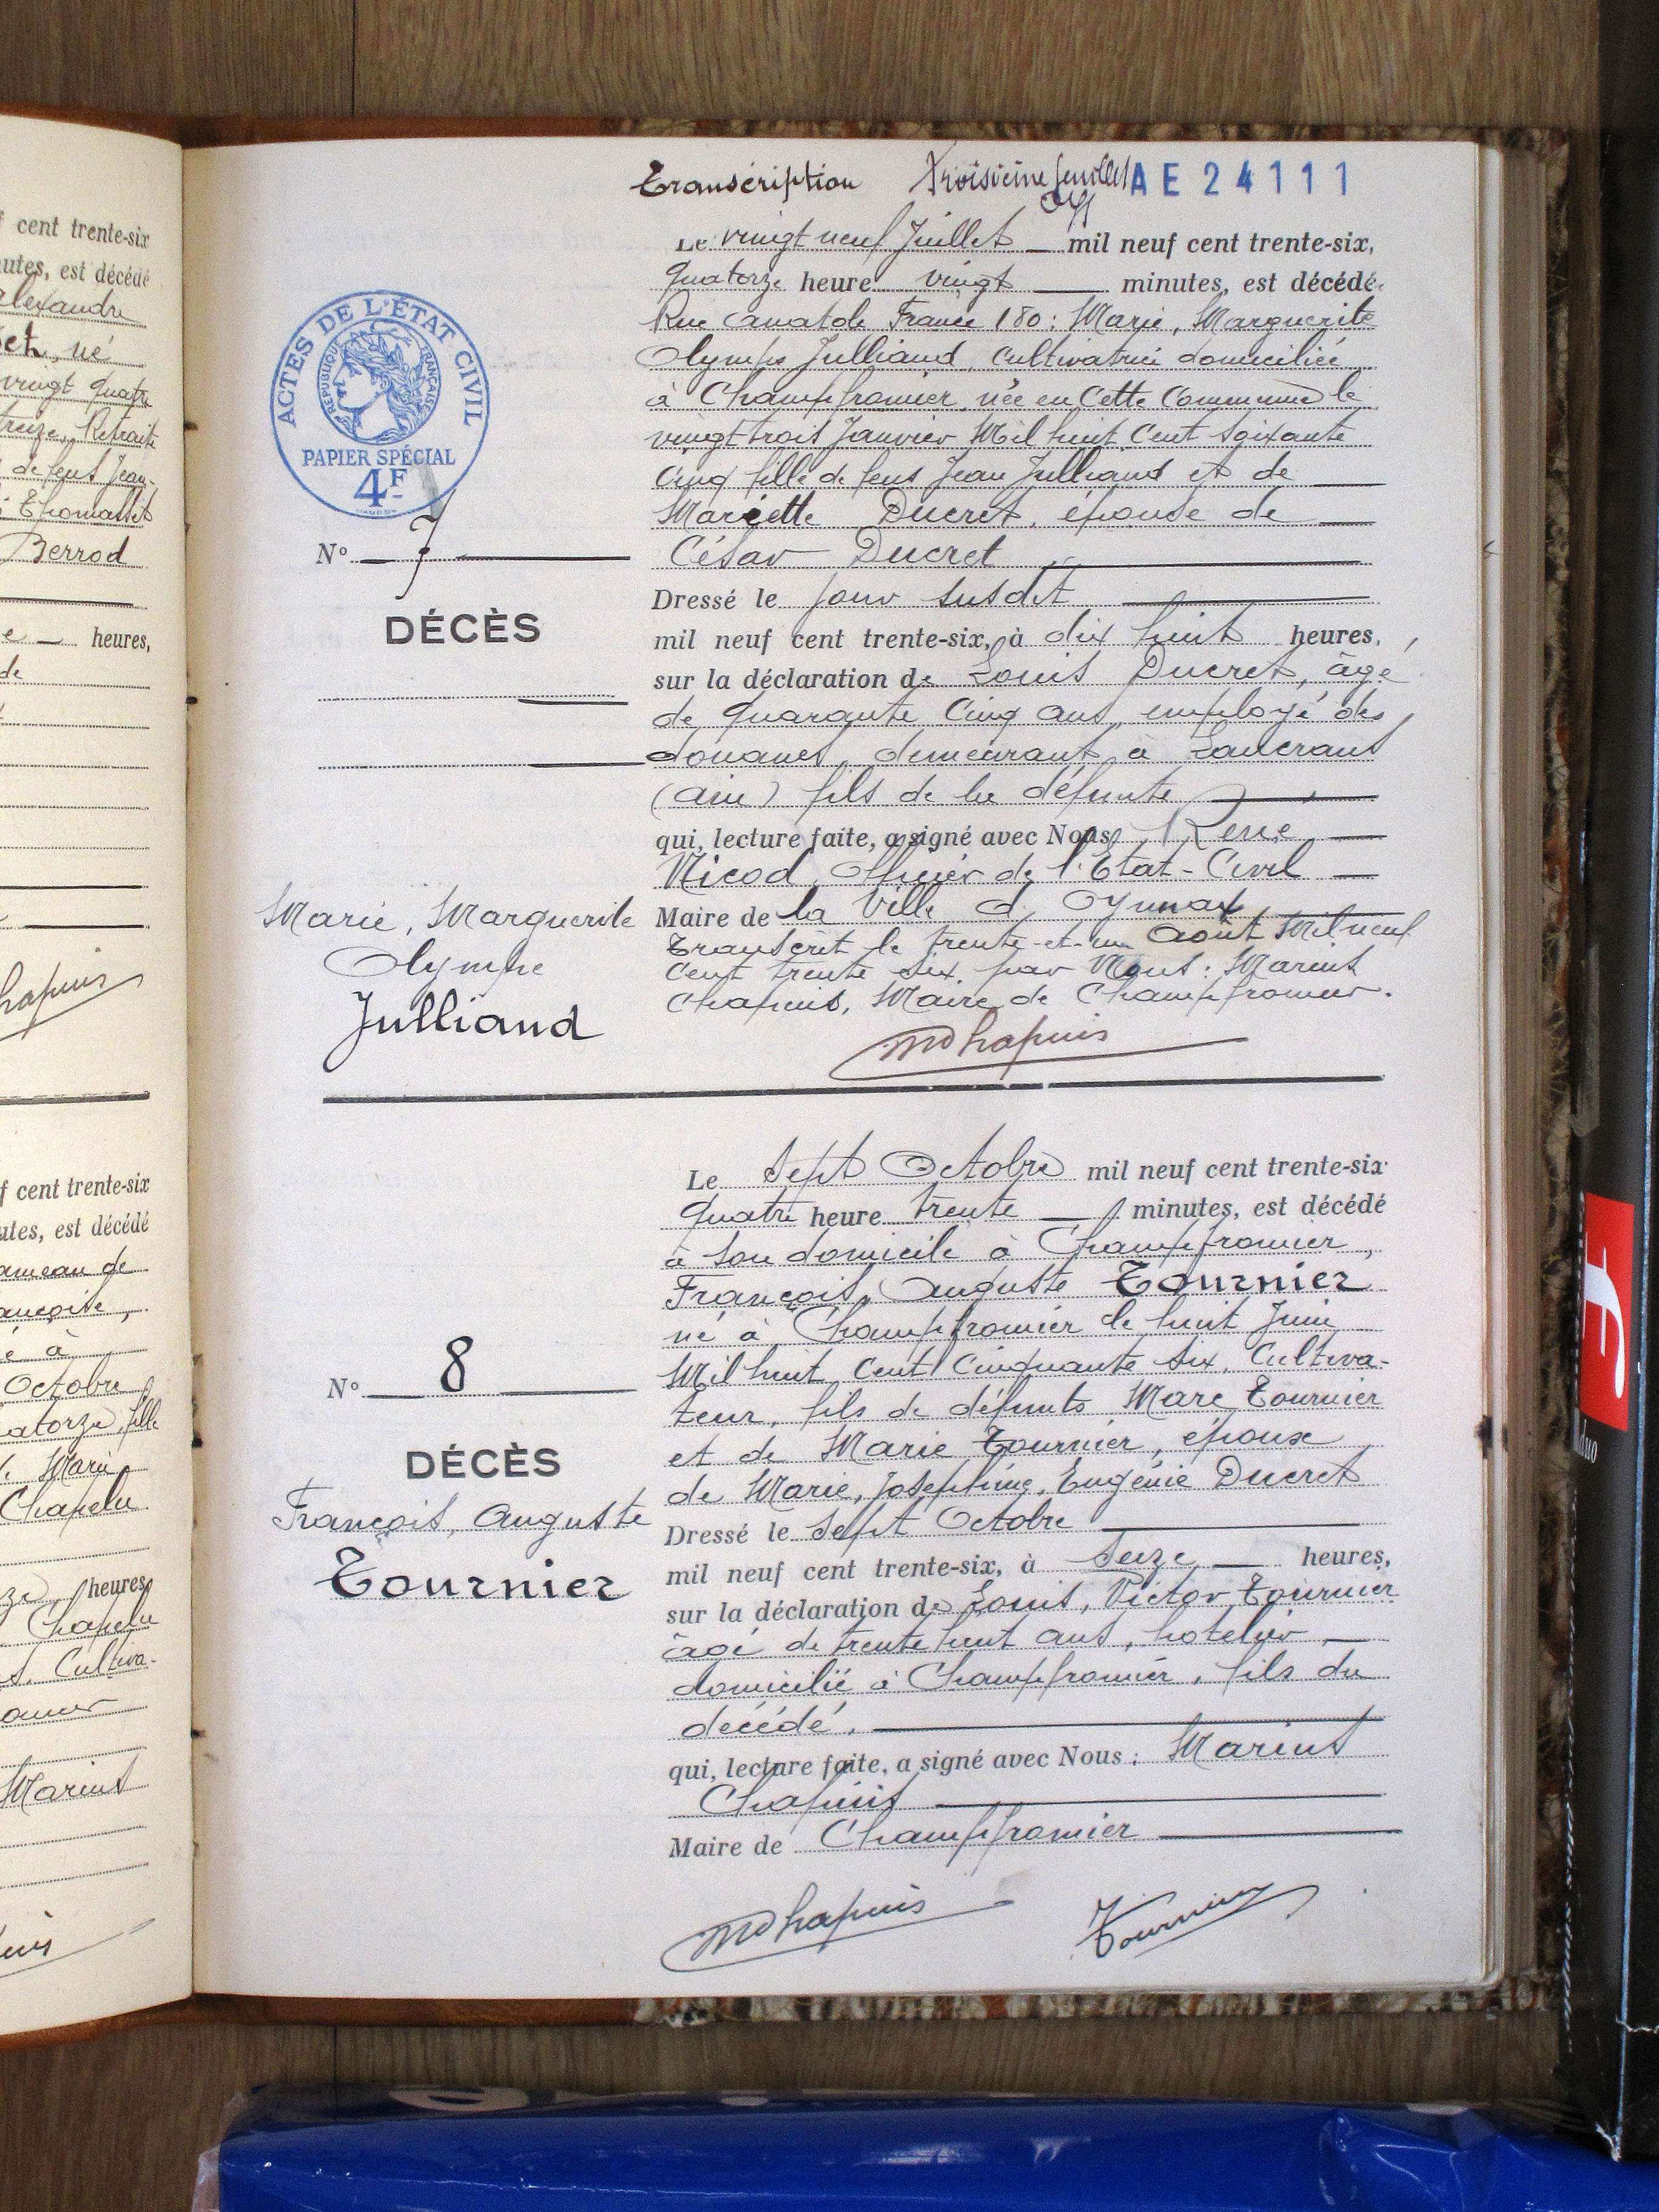 f cent trente-six
utes, est décédé
alexandre
né
vingt quatre
treize, Retraité
de feus Jean-
Thomasset
Berrod
heures,
de
hapuis
f cent trente-six
utes, est décédé
ameau de
ançoise,
é à
Octobre
atorze, fille
Marie
Chapelu
ze heures,
Chapelu
s, Cultiva-
Marius
uis
Transcription Troisième feuillet AE24111
Le vingt neuf Juillet mil neuf cent trente-six,
quatorze heure vingt minutes, est décédé
Rue Anatole France 180: Marie, Marguerite
Olympe Julliand, Cultivatrice domiciliée
à Champfromier, née en Cette Commune le
vingt trois Janvier Mil huit Cent Soixante
Cinq fille de feus Jean Julliand et de
Mariette Ducret, épouse de
César Ducret
Dressé le jour susdit
mil neuf cent trente-six, à dix huit heures,
sur la déclaration de Louis Ducret, âgé
de quarante Cinq ans, employé des
douanes, demeurant à Lancrans
(Ain) fils de la défunte
qui, lecture faite, a signé avec Nous, René
Nicod, Officier de l'Etat-Civil
Maire de la Ville d'Oyonnax
Transcrit le trente-et-un Août Mil neuf
Cent trente six, par Nous: Marius
Chapuis, Maire de Champfromier.
MChapuis
ACTES DE L'ÉTAT CIVIL
RÉPUBLIQUE FRANÇAISE
PAPIER SPÉCIAL
4F
N° 7
DÉCÈS
Marie, Marguerite
Olympe
Julliand
Le Sept Octobre mil neuf cent trente-six
quatre heure trente minutes, est décédé
à son domicile à Champfromier,
François, Auguste Tournier
né à Champfromier le huit Juin
Mil huit Cent Cinquante Six, Cultiva-
teur, fils de défunts Marc Tournier
et de Marie Tournier, époux
de Marie, Joséphine, Eugénie Ducret
Dressé le Sept Octobre
mil neuf cent trente-six, à seize heures,
sur la déclaration de Louis, Victor Tournier
âgé de trente huit ans, hotelier,
domicilié à Champfromier, fils du
décédé.
qui, lecture faite, a signé avec Nous: Marius
Chapuis
Maire de Champfromier
MChapuis Tournier
N° 8
DÉCÈS
François, Auguste
Tournier